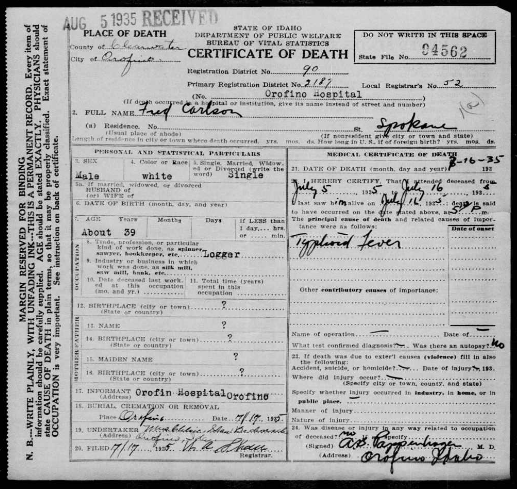 AUG 5 1935 RECEIVED
STATE OF IDAHO
DEPARTMENT OF PUBLIC WELFARE
BUREAU OF VITAL STATISTICS
CERTIFICATE OF DEATH
DO NOT WRITE IN THIS SPACE
State File No. 94562
PLACE OF DEATH
County of Clearwater
City of Orofino
Registration District No. 90
Primary Registration Dist. No. 2187 Local Registrar's No. 52
(No. Orofino Hospital
(If death occurred in a hospital or institution, give its name instead of street and number)
2. FULL NAME Fred Carlson
(a) Residence. No. St. Spokane
(Usual place of abode) (If nonresident give city or town and state)
Length of residence in city or town where death occurred. yrs. mos. ds. How long in U. S., if of foreign birth? yrs. mos. ds.
PERSONAL AND STATISTICAL PARTICULARS
3. SEX 4. Color or Race 5. Single, Married, Widowed or Divorced (write the word)
Male white Single
5a. If married, widowed, or divorced
HUSBAND of
(or) WIFE of
6. DATE OF BIRTH (month, day, and year)
7. AGE Years Months Days If LESS than 1 day, hrs. or min.
About 39
OCCUPATION
8. Trade, profession, or particular kind of work done, as spinner, sawyer, bookkeeper, etc. Logger
9. Industry or business in which work was done, as silk mill, saw mill, bank, etc.
10. Date deceased last worked at this occupation (mo. and yr.) 11. Total time (years) spent in this occupation
12. BIRTHPLACE (city or town) ?
(State or country)
13. NAME ?
14. BIRTHPLACE (city or town) ?
(State or country)
15. MAIDEN NAME ?
16. BIRTHPLACE (city or town) ?
(State or country)
17. INFORMANT Orofin Hospital Orofino
(Address)
18. BURIAL CREMATION OR REMOVAL
Place Orofino Date 7/17 1935
19. UNDERTAKER
(Address) Orofino
20. FILED 7/17 1935
Registrar.
MEDICAL CERTIFICATE OF DEATH
21. DATE OF DEATH (month, day and year) 193
-16-35
22. I HEREBY CERTIFY, That I attended deceased from
July 5 1935 July 16
I last saw him alive on July 16 1935 death is said
to have occurred on the date stated above, at m.
The principal cause of death and related causes of importance were as follows: Date of onset
Typhoid Fever
Other contributory causes of importance:
Name of operation Date of
What test confirmed diagnosis? Was there an autopsy? No
23. If death was due to external causes (violence) fill in also the following:
Accident, suicide, or homicide? Date of injury 193
Where did injury occur?
(Specify city or town, county, and state)
Specify whether injury occurred in industry, in home, or in public place.
Manner of injury
Nature of injury
24. Was disease or injury in any way related to occupation of deceased? no
(Signed) M. D.
(Address) Orofino Idaho
MARGIN RESERVED FOR BINDING
N. B.—WRITE PLAINLY, WITH UNFADING INK—THIS IS A PERMANENT RECORD. Every item of information should be carefully supplied. AGE should be stated EXACTLY. PHYSICIANS should state CAUSE OF DEATH in plain terms, so that it may be properly classified. Exact statement of OCCUPATION is very important. See instruction on back of certificate.